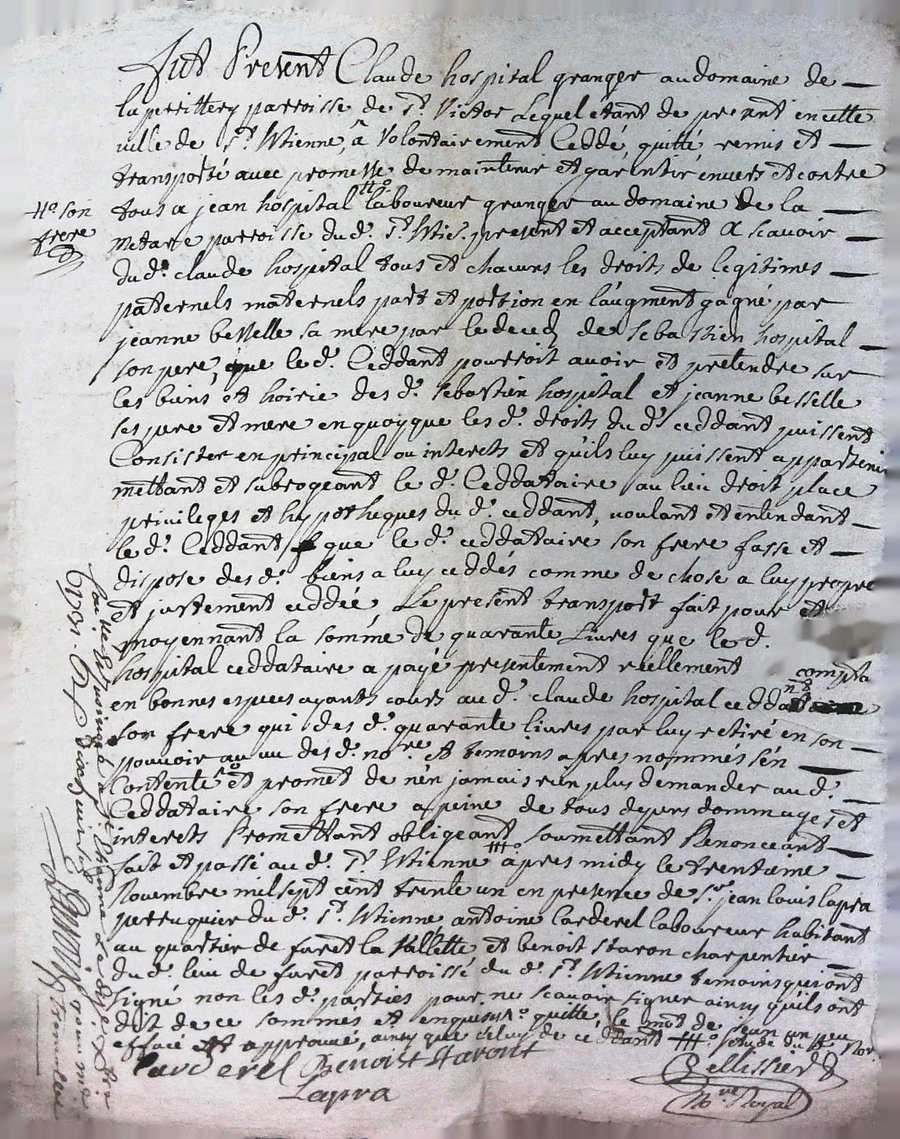 fut Present Claude hospital granger au domaine de
la perrittery parroisse de St. Victor Lequel etant de present en cette
ville de St. Etienne, a Volontairement Ceddé, quitté remis et
transporté avec promesse de maintenir et garentir envers et contre
tous a jean hospital laboureur granger au domaine de la
son
frere
metare parroisse du d. St. Etie. present et acceptant a scavoir
du d. claude hospital tous et chacuns les droits de legitimes
paternels maternels part et portion en l'augment gagné par
jeanne besselle sa mere par le deced de sebastien hospital
son pere, que le d. Ceddant pourroit avoir et pretendre sur
les biens et hoirie des d. sebastien hospital et jeanne besselle
ses pere et mere en quoyque les d. droits du d. ceddant puissent
Consister en principal ou interets et qu'ils luy puissent appartenir
mettant et subrogeant le d. Ceddataire au lieu droit place
privileges et hypotheques du d. ceddant, voulant et entendant
le d. Ceddant que le d. ceddataire son frere fasse et
dispose des d. biens a luy ceddés comme de chose a luy propre
et justement ceddée Le present transport fait pour et
moyennant la somme de quarante Livres que le d.
hospital ceddataire a payé presentement reellement compta
en bonnes especes ayants cours au d. claude hospital
son frere qui des d. quarante livres par luy retiré en son
pouvoir au vu des d. nore. et temoins apres nommés s'en
Contente et promet de n'en jamais rien plus demander au d.
Ceddataire son frere a peine de tous depens dommages et
interets Promettant obligeant soumettant Renonceant
fait et passé au d. St Etienne apres midy le trentieme
Novembre mil sept cent trente un en presence de Sr. jean louis lapra
perruquier du d. St. Etienne, antoine larderel laboureur habitant
au quartier de furet la Vallette et benoit staron charpentier
du d. lieu de furet parroisse du d. St. Etienne temoins qui ont
signé non les d. parties pour ne scavoir signer ainsy qu'ils ont
dit de ce sommés et enquis quitte le mot de
effacé et approuvé, ainsy que celuy de céddant
larderel Benoist staront
Lapra
Pellissier
Nre Royal